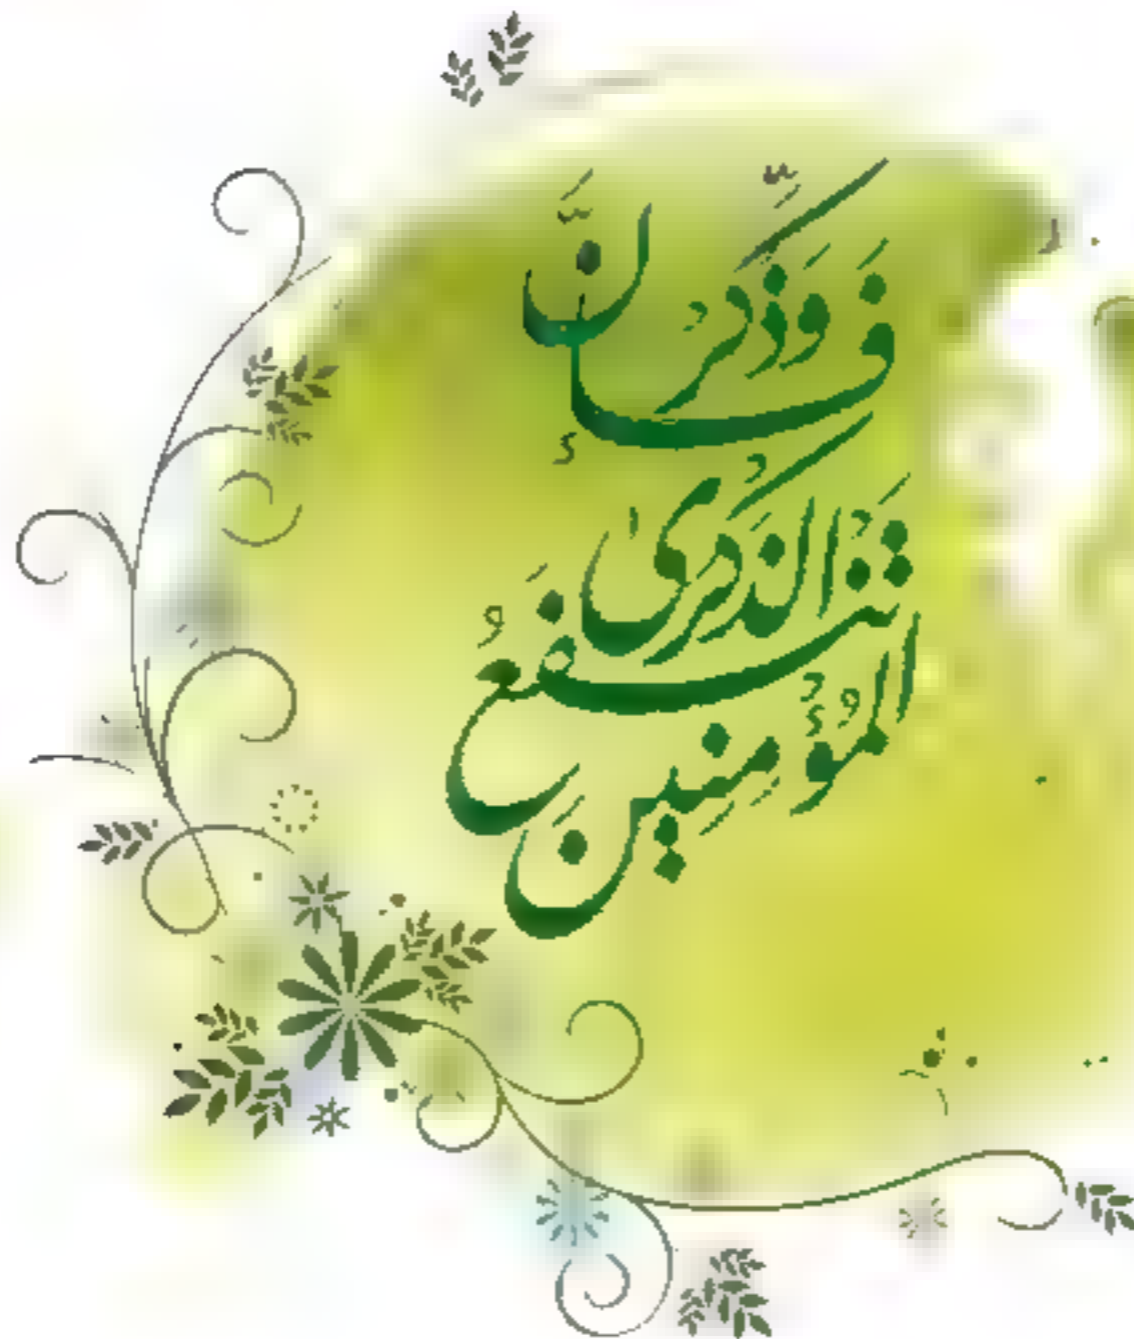 وَذَكِّرْ فَإِنَّ
الذِّكْرَىٰ تَنْفَعُ
الْمُؤْمِنِينَ